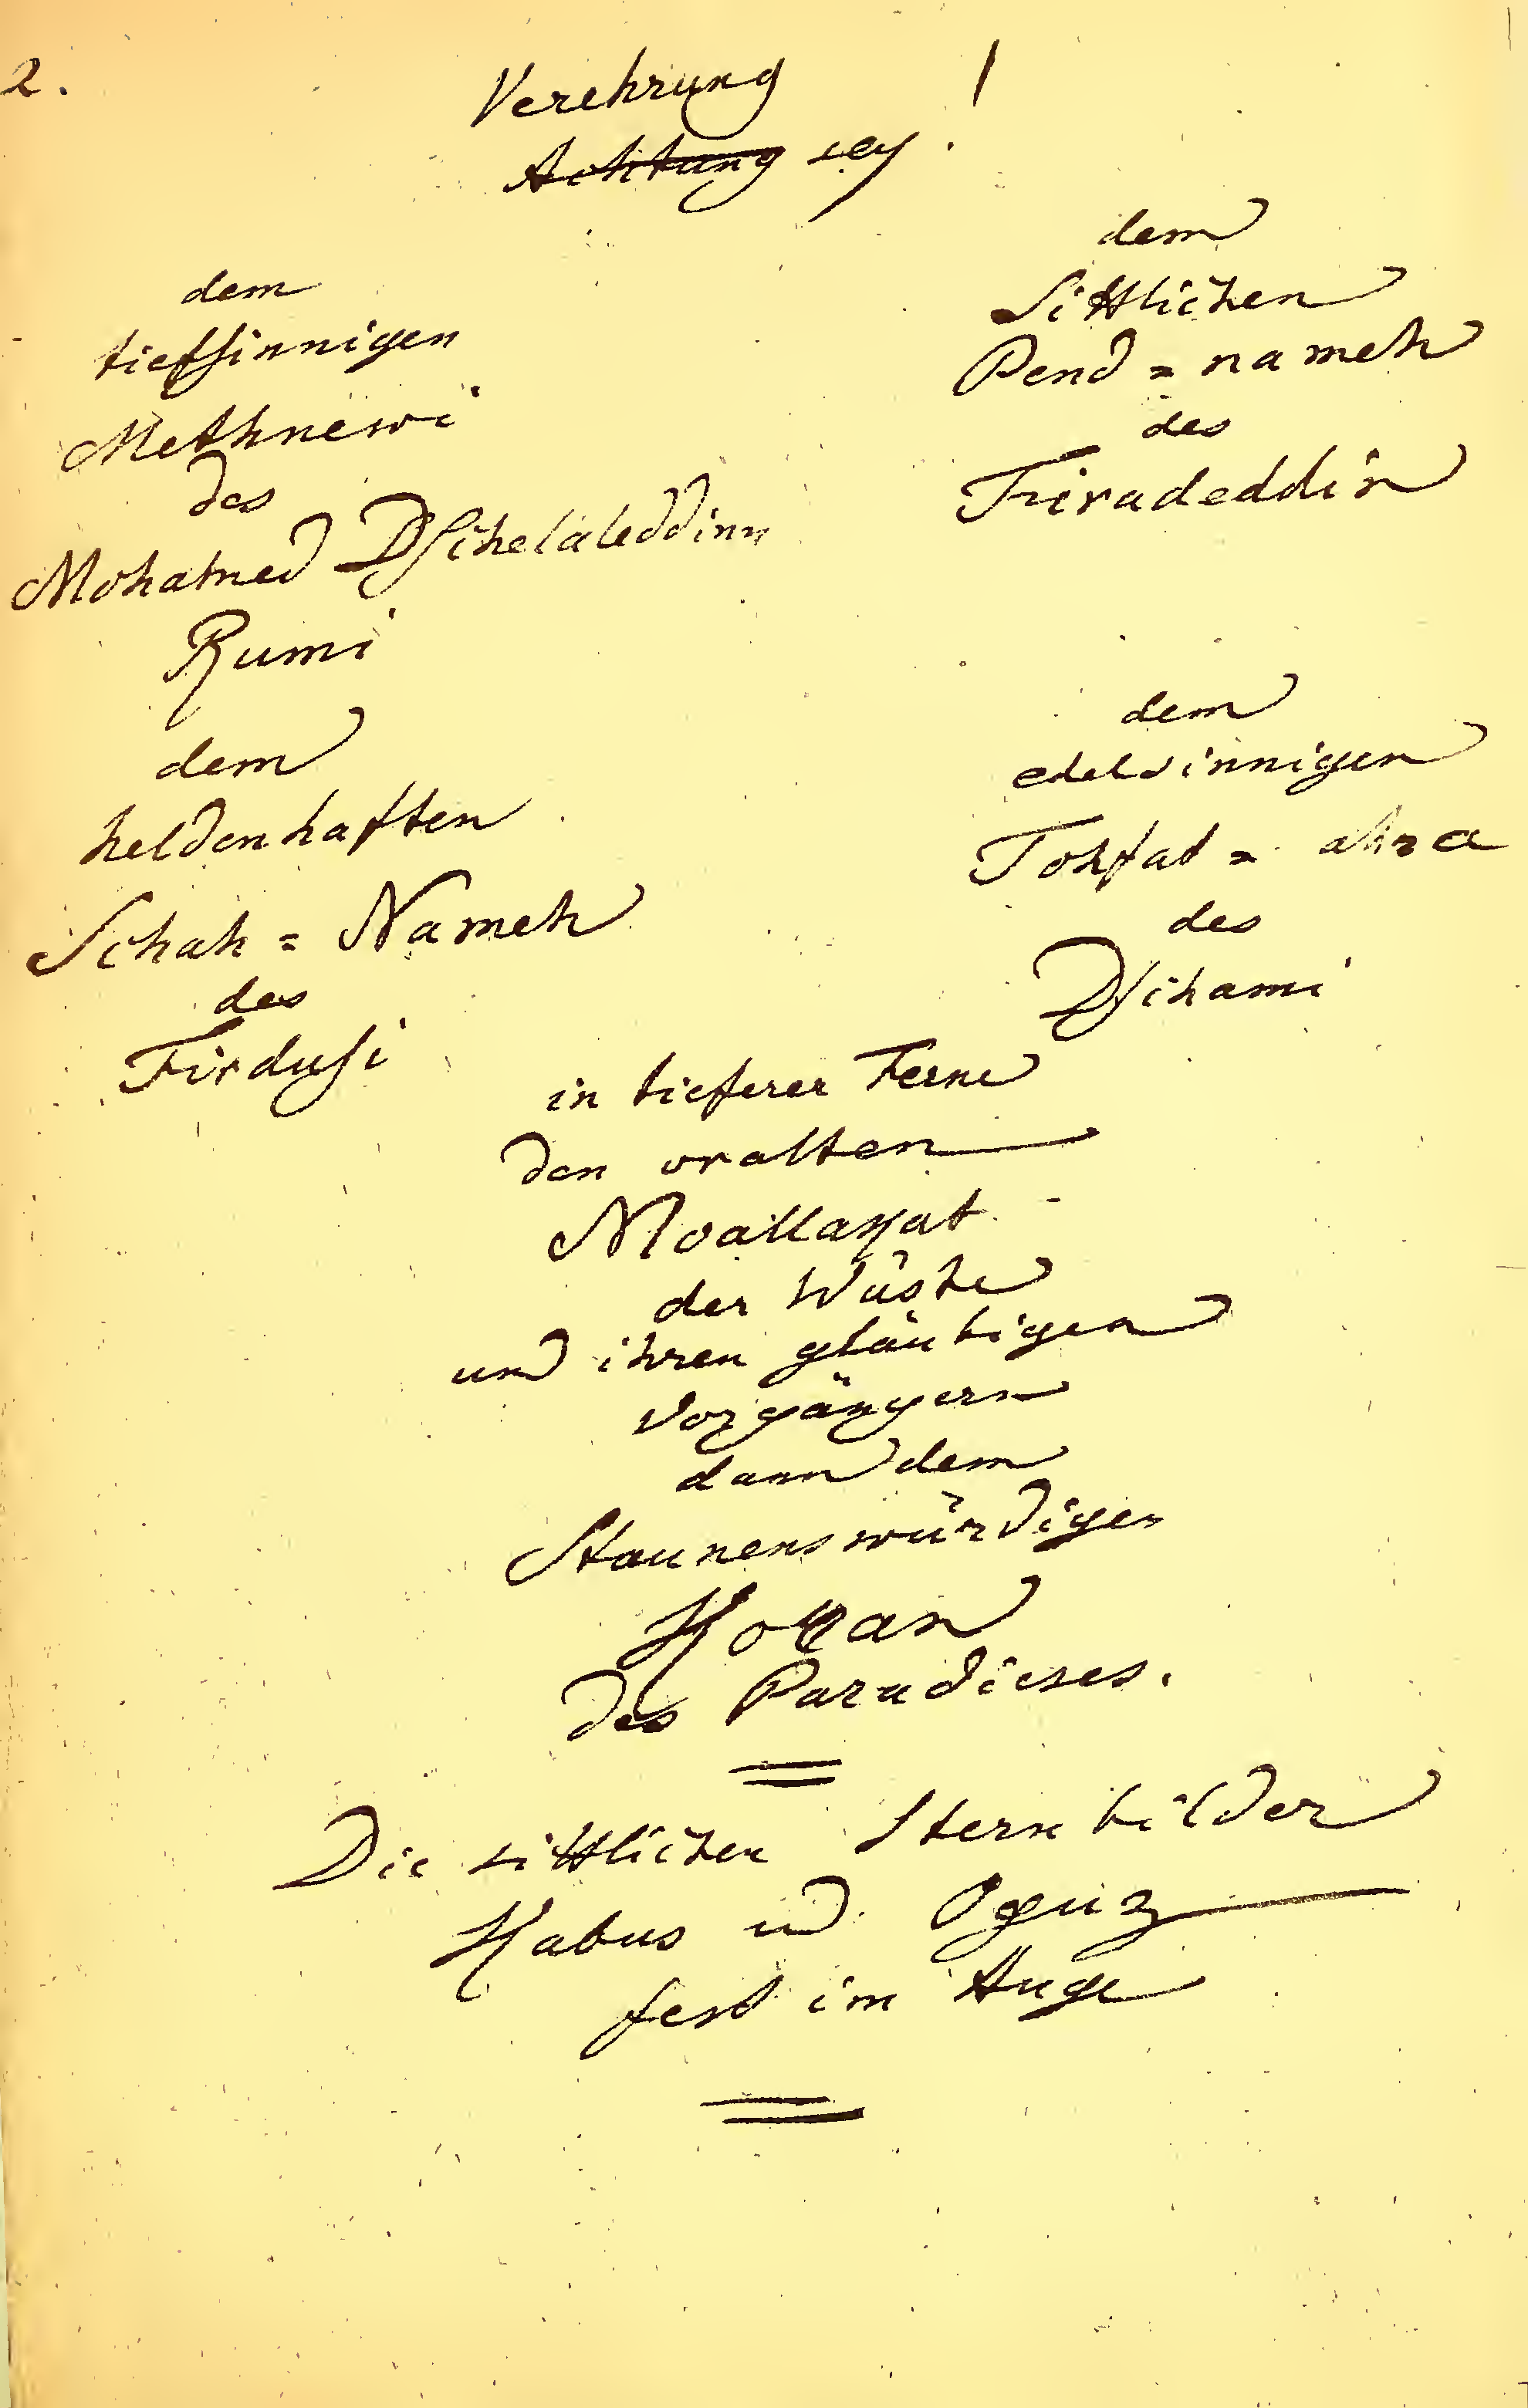 2.
Verehrung
Achtung sey!
dem
tiefsinnigen
Methnewi
des
Mohamed Dschelaleddinn
Rumi
dem
Sittlichen
Pend=nameh
des
Firadeddin
dem
heldenhaften
Schah=Nameh
des
Firdusi
dem
edelsinnigen
Tohfat=
des
Dschami
in tieferer Ferne
den uralten
Moallakat
der Wüste
und ihren gläubigen
Vorgängern
dann dem
Staunenswürdigen
Koran
des Paradieses.
Die sittlichen Sternbilder
Kabus ud Oguz
fest im Auge